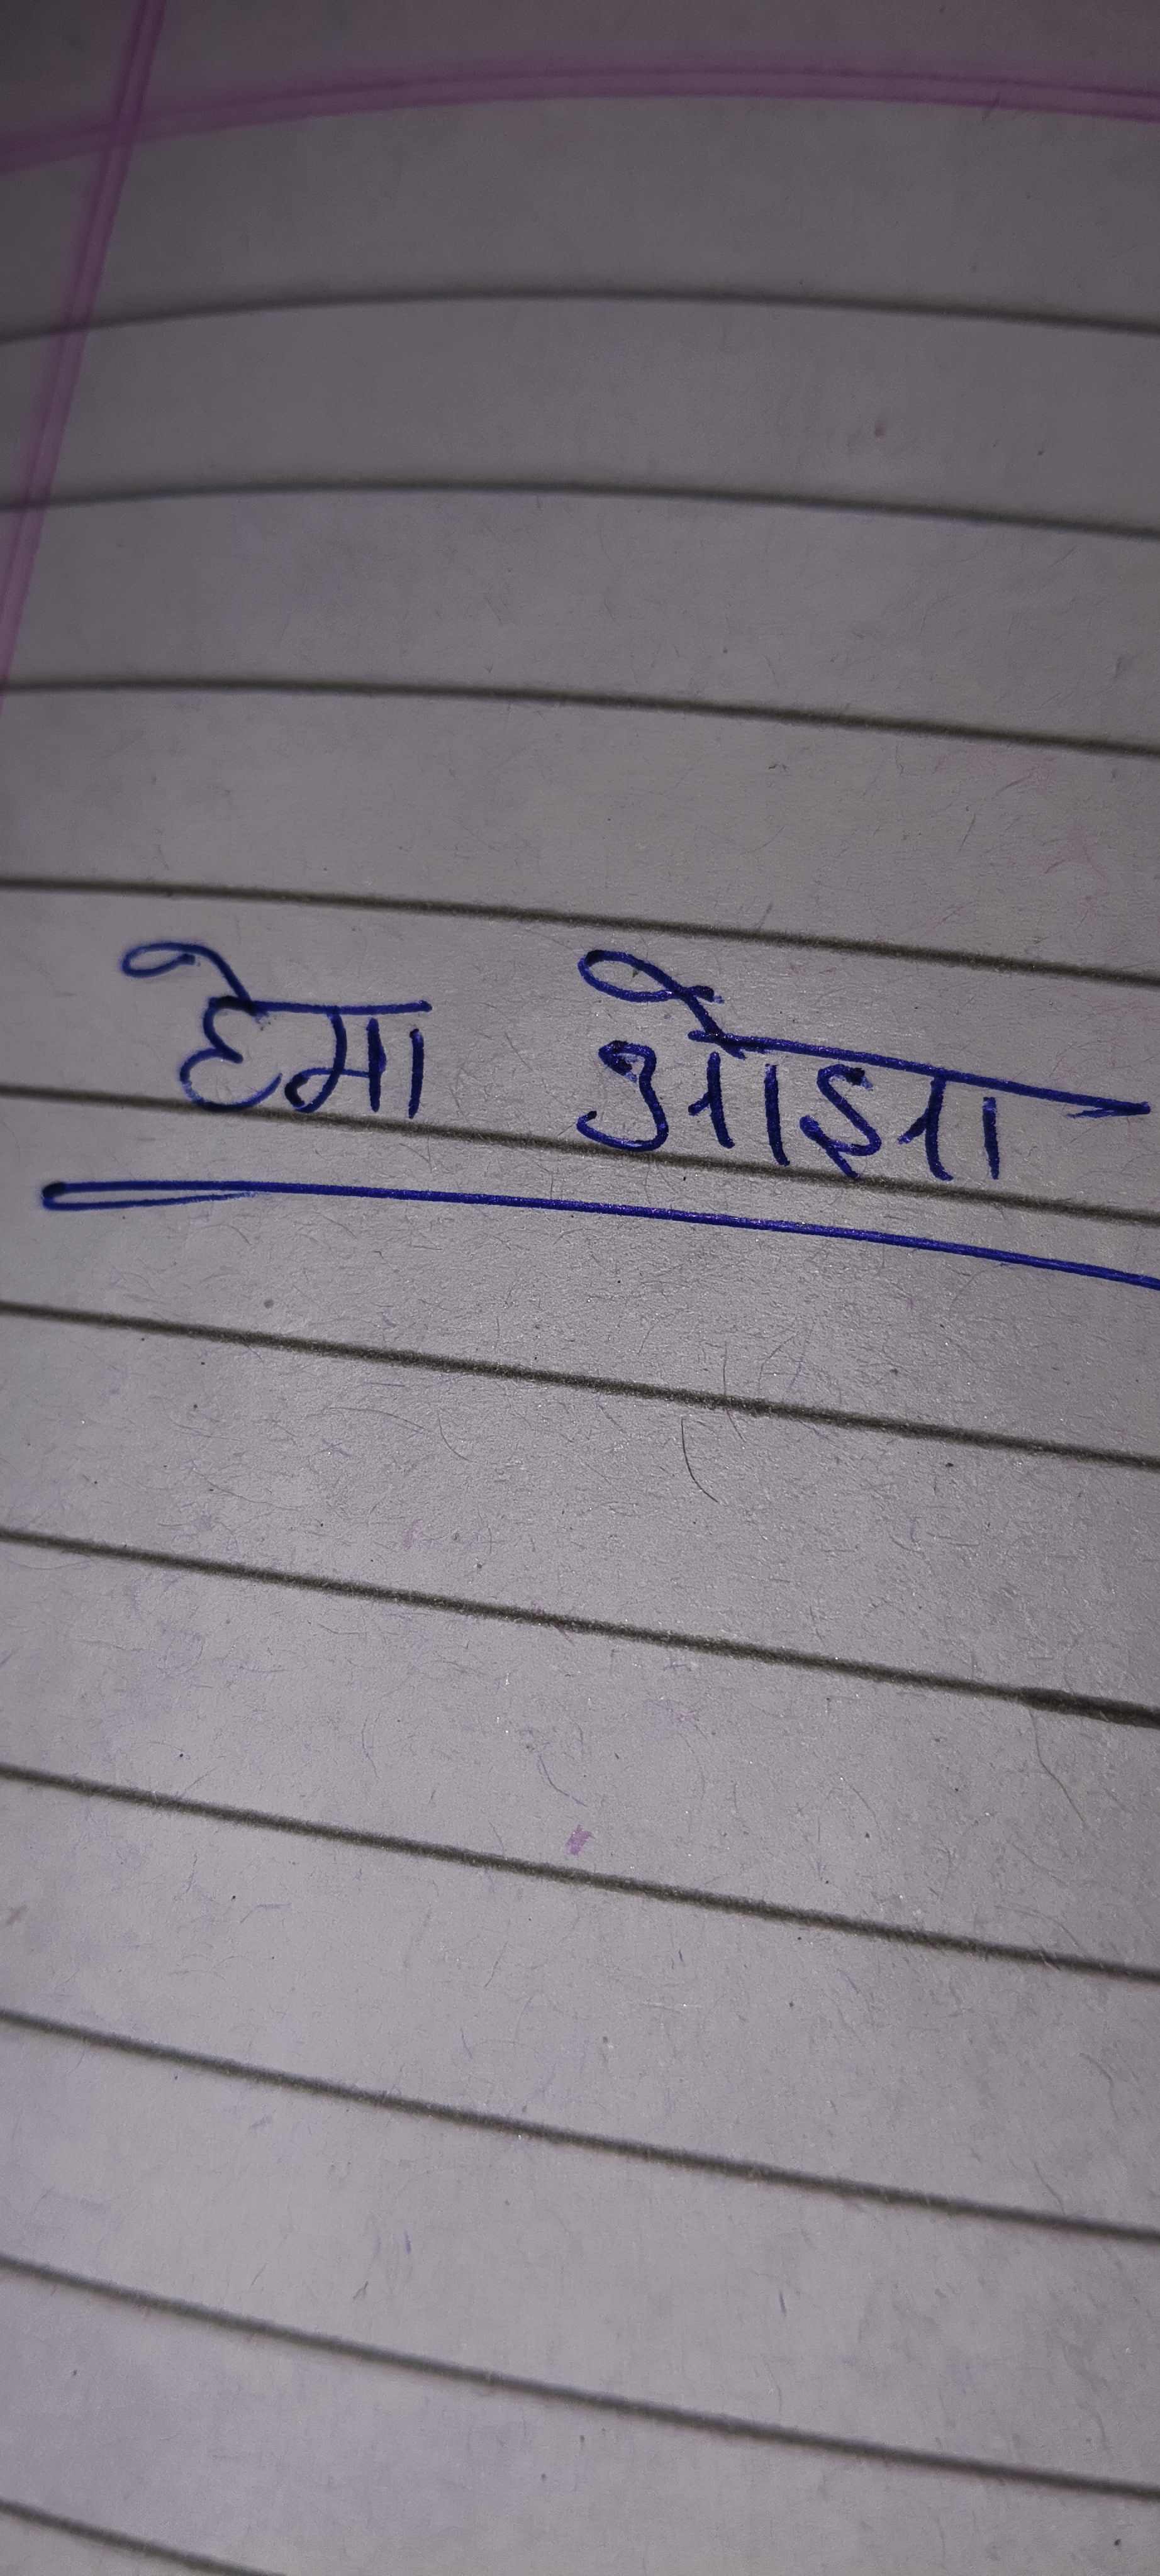 हेमा ओझा